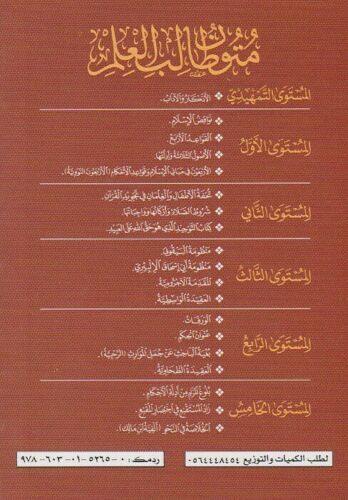 متون طالب العلم
المستوى التمهيدي
الأذكار والآداب.
المستوى الأول
نواقض الإسلام.
القواعد الأربع.
الأصول الثلاثة وأدلتها.
الأربعون في مباني الإسلام وقواعد الأحكام (الأربعون النووية).
المستوى الثاني
تحفة الأطفال والغلمان في تجويد القرآن.
شروط الصلاة وأركانها وواجباتها.
كتاب التوحيد الذي هو حق الله على العبيد.
المستوى الثالث
منظومة البيقوني.
منظومة أبي إسحاق الإلبيري.
المقدمة الآجرومية.
العقيدة الواسطية.
المستوى الرابع
الورقات.
عنوان الحكم.
بغية الباحث عن جمل الموارث (الرحبية).
العقيدة الطحاوية.
المستوى الخامس
بلوغ المرام من أدلة الأحكام.
زاد المستقنع في اختصار المقنع.
الخلاصة في النحو (ألفية ابن مالك).
لطلب الكميات والتوزيع ٠٥٦٤٤٤٨٤٥٤
ردمك: ٠-٥٢٦٥-٠١-٦٠٣-٩٧٨